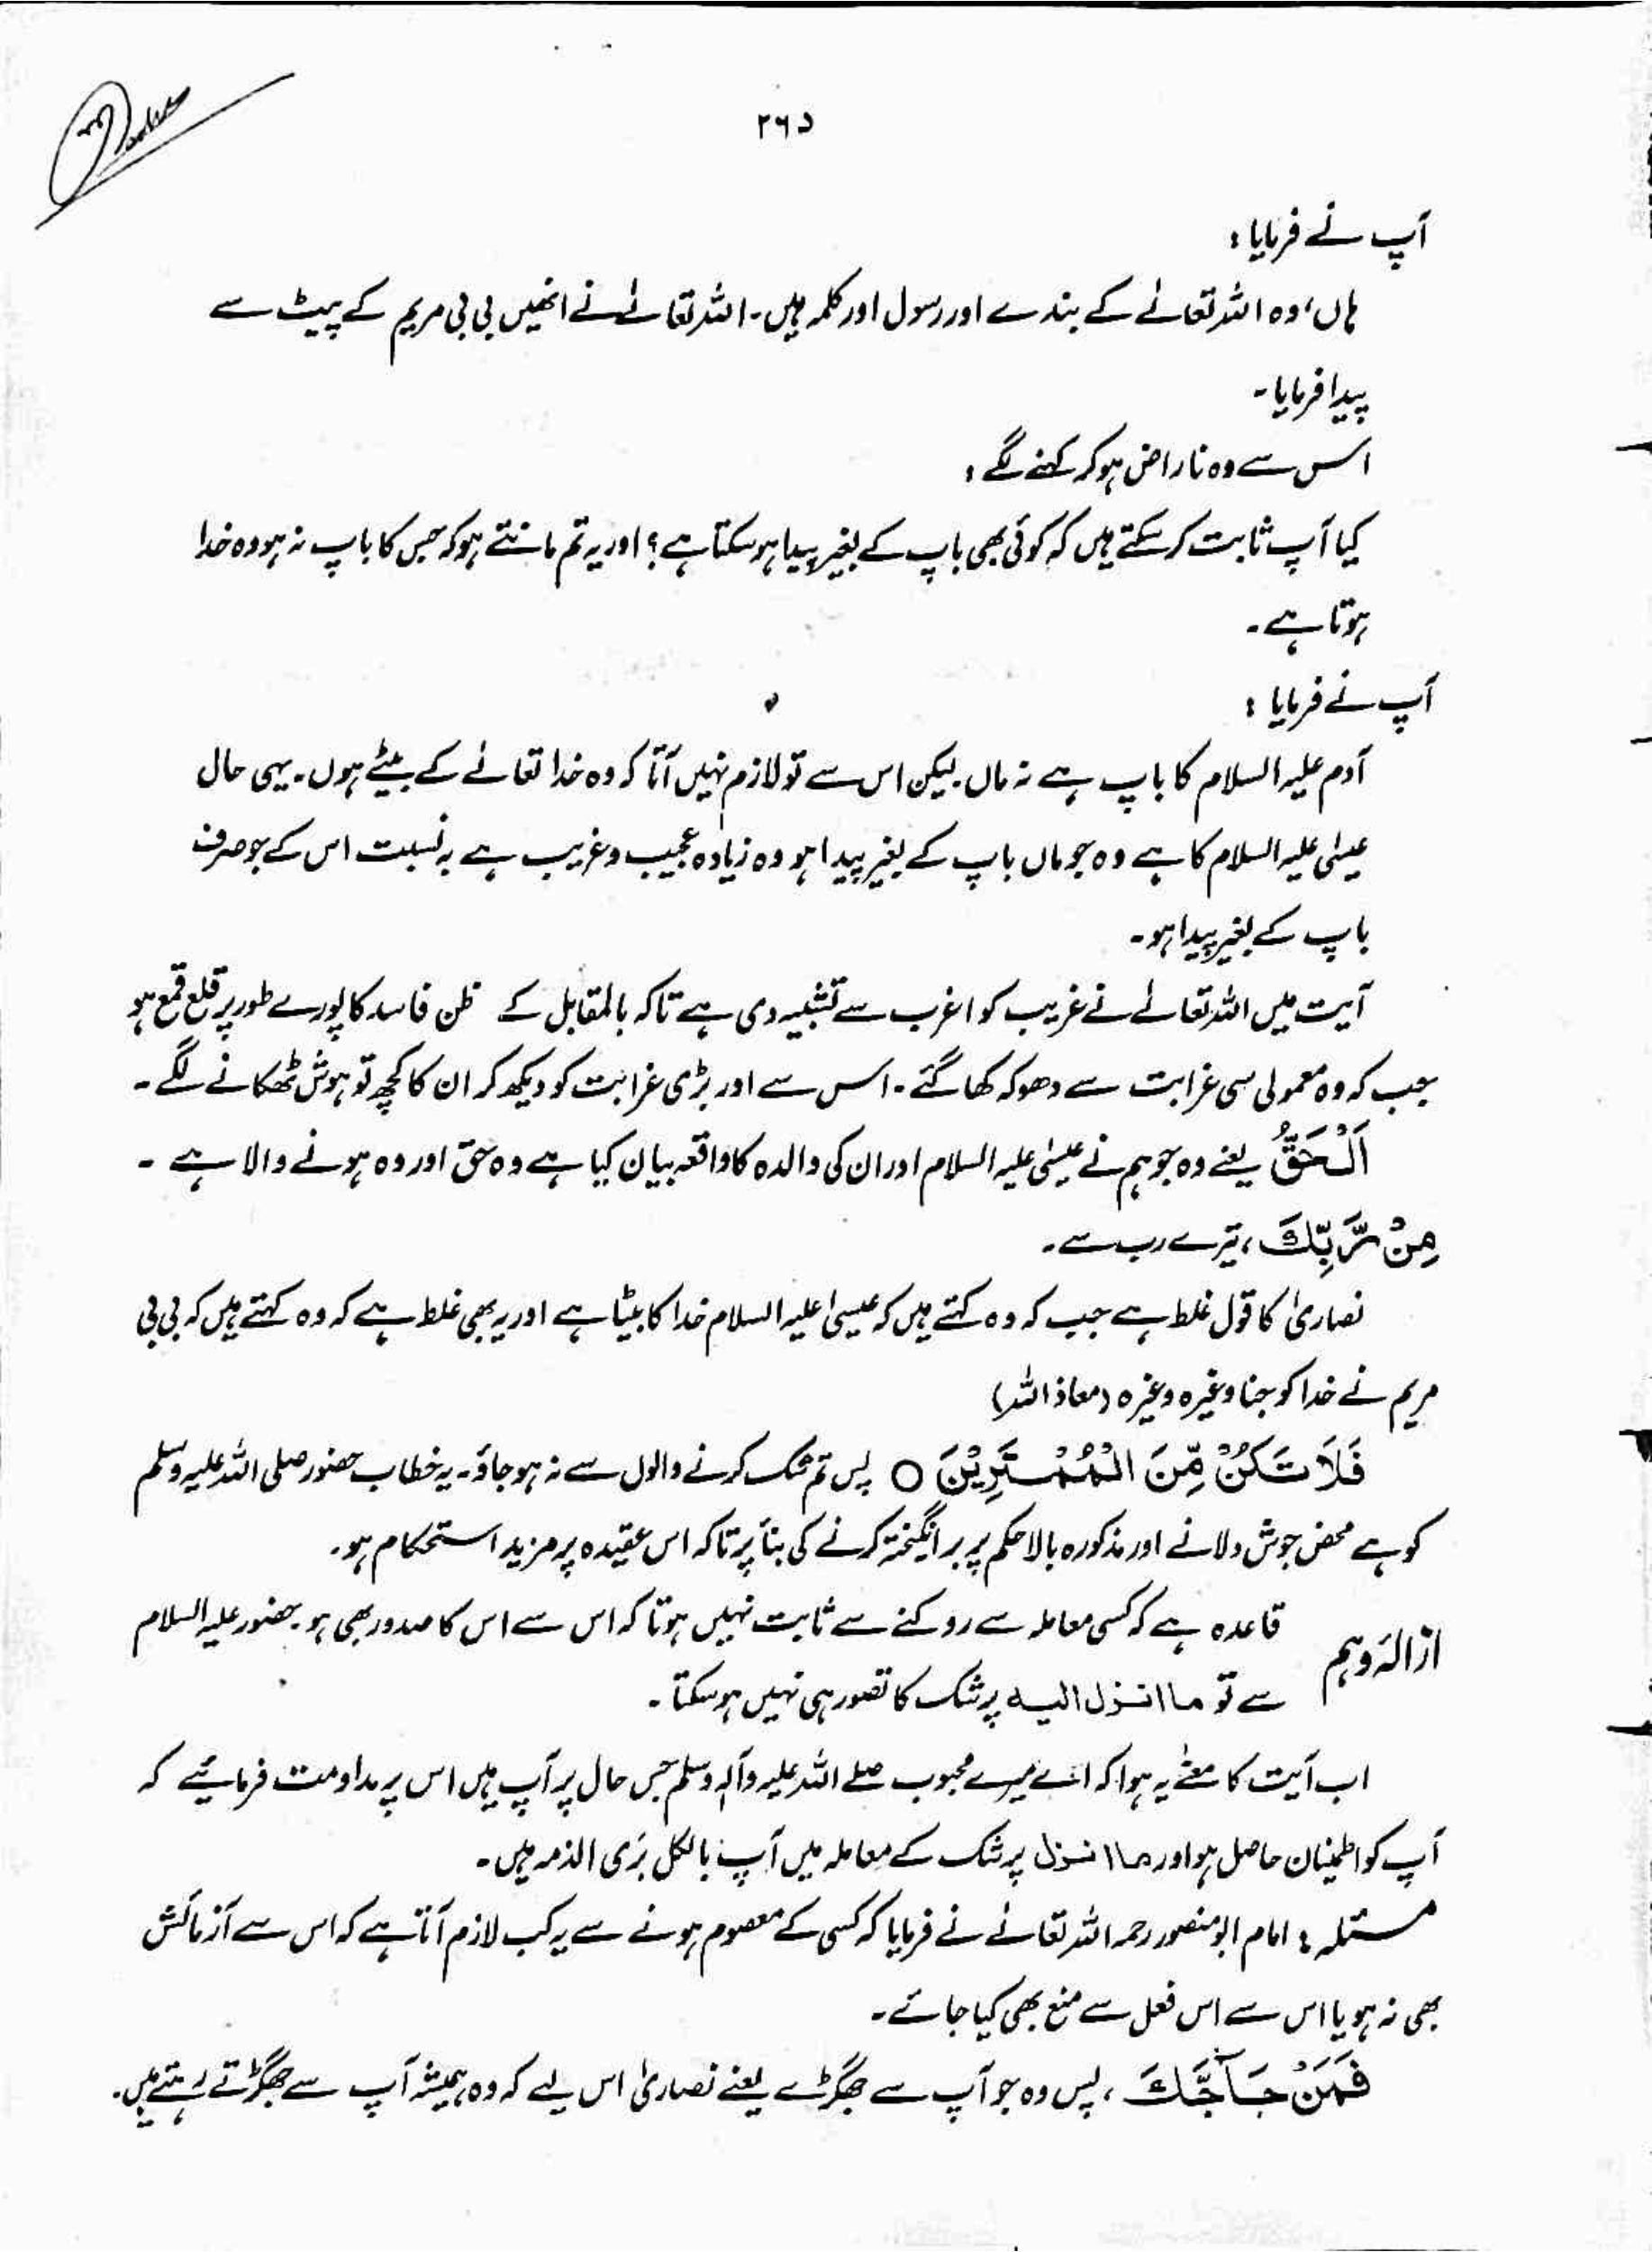 ۲۶۵
آپ نے فرمایا :
ہاں، وہ اللہ تعالےٰ کے بندے اور رسول اور کلمہ ہیں۔ اللہ تعالےٰ نے انھیں بی بی مریم کے پیٹ سے
پیدا فرمایا۔
اس سے وہ ناراض ہو کر کہنے لگے :
کیا آپ ثابت کر سکتے ہیں کہ کوئی بھی باپ کے بغیر پیدا ہو سکتا ہے؟ اور یہ تم مانتے ہو کہ جس کا باپ نہ ہو وہ خدا
ہوتا ہے۔
آپ نے فرمایا :
آدم علیہ السلام کا باپ ہے نہ ماں۔ لیکن اس سے تو لازم نہیں آتا کہ وہ خدا تعالےٰ کے بیٹے ہوں۔ یہی حال
عیسٰی علیہ السلام کا ہے وہ جو ماں باپ کے بغیر پیدا ہو وہ زیادہ عجیب و غریب ہے بہ نسبت اس کے جو صرف
باپ کے بغیر پیدا ہو۔
آیت میں اللہ تعالےٰ نے غریب کو اغرب سے تشبیہ دی ہے تاکہ بالمقابل کے ظن فاسد کا پورے طور پر قلع قمع ہو
جب کہ وہ معمولی سی غرابت سے دھوکہ کھا گئے۔ اس سے اور بڑی غرابت کو دیکھ کر ان کا کچھ تو ہوش ٹھکانے لگے۔
اَلْحَقُّ یعنے وہ جو ہم نے عیسٰی علیہ السلام اور ان کی والدہ کا واقعہ بیان کیا ہے وہ حق اور وہ ہونے والا ہے۔
مِنْ رَّبِّكَ، تیرے رب سے۔
نصاریٰ کا قول غلط ہے جب کہ وہ کہتے ہیں کہ عیسیٰ علیہ السلام خدا کا بیٹا ہے اور یہ بھی غلط ہے کہ وہ کہتے ہیں کہ بی بی
مریم نے خدا کو جنا وغیرہ وغیرہ (معاذ اللہ)
فَلَا تَكُنْ مِّنَ الْمُمْتَرِيْنَ ○ پس تم شک کرنے والوں سے نہ ہو جاؤ۔ یہ خطاب حضور صلی اللہ علیہ وسلم
کو ہے محض جوش دلانے اور مذکورہ بالا حکم پر برانگیختہ کرنے کی بنا پر تاکہ اس عقیدہ پر مزید استحکام ہو۔
ازالۂ وہم
قاعدہ ہے کہ کسی معاملہ سے روکنے سے ثابت نہیں ہوتا کہ اس سے اس کا صدور بھی ہو۔ حضور علیہ السلام
سے تو ما انزل الیہ پر شک کا تصور ہی نہیں ہو سکتا۔
اب آیت کا معنےٰ یہ ہوا کہ اے میرے محبوب صلے اللہ علیہ وآلہ وسلم جس حال پر آپ ہیں اس پر مداومت فرمائیے کہ
آپ کو اطمینان حاصل ہو اور ما انزل پر شک کے معاملہ میں آپ بالکل بری الذمہ ہیں۔
مسئلہ : امام ابو منصور رحمہ اللہ تعالےٰ نے فرمایا کہ کسی کے معصوم ہونے سے یہ کب لازم آتا ہے کہ اس سے آزمائش
بھی نہ ہو یا اس سے اس فعل سے منع بھی کیا جائے۔
فَمَنْ حَآجَّكَ، پس وہ جو آپ سے جھگڑے یعنے نصاریٰ اس لیے کہ وہ ہمیشہ آپ سے جھگڑتے رہتے ہیں۔